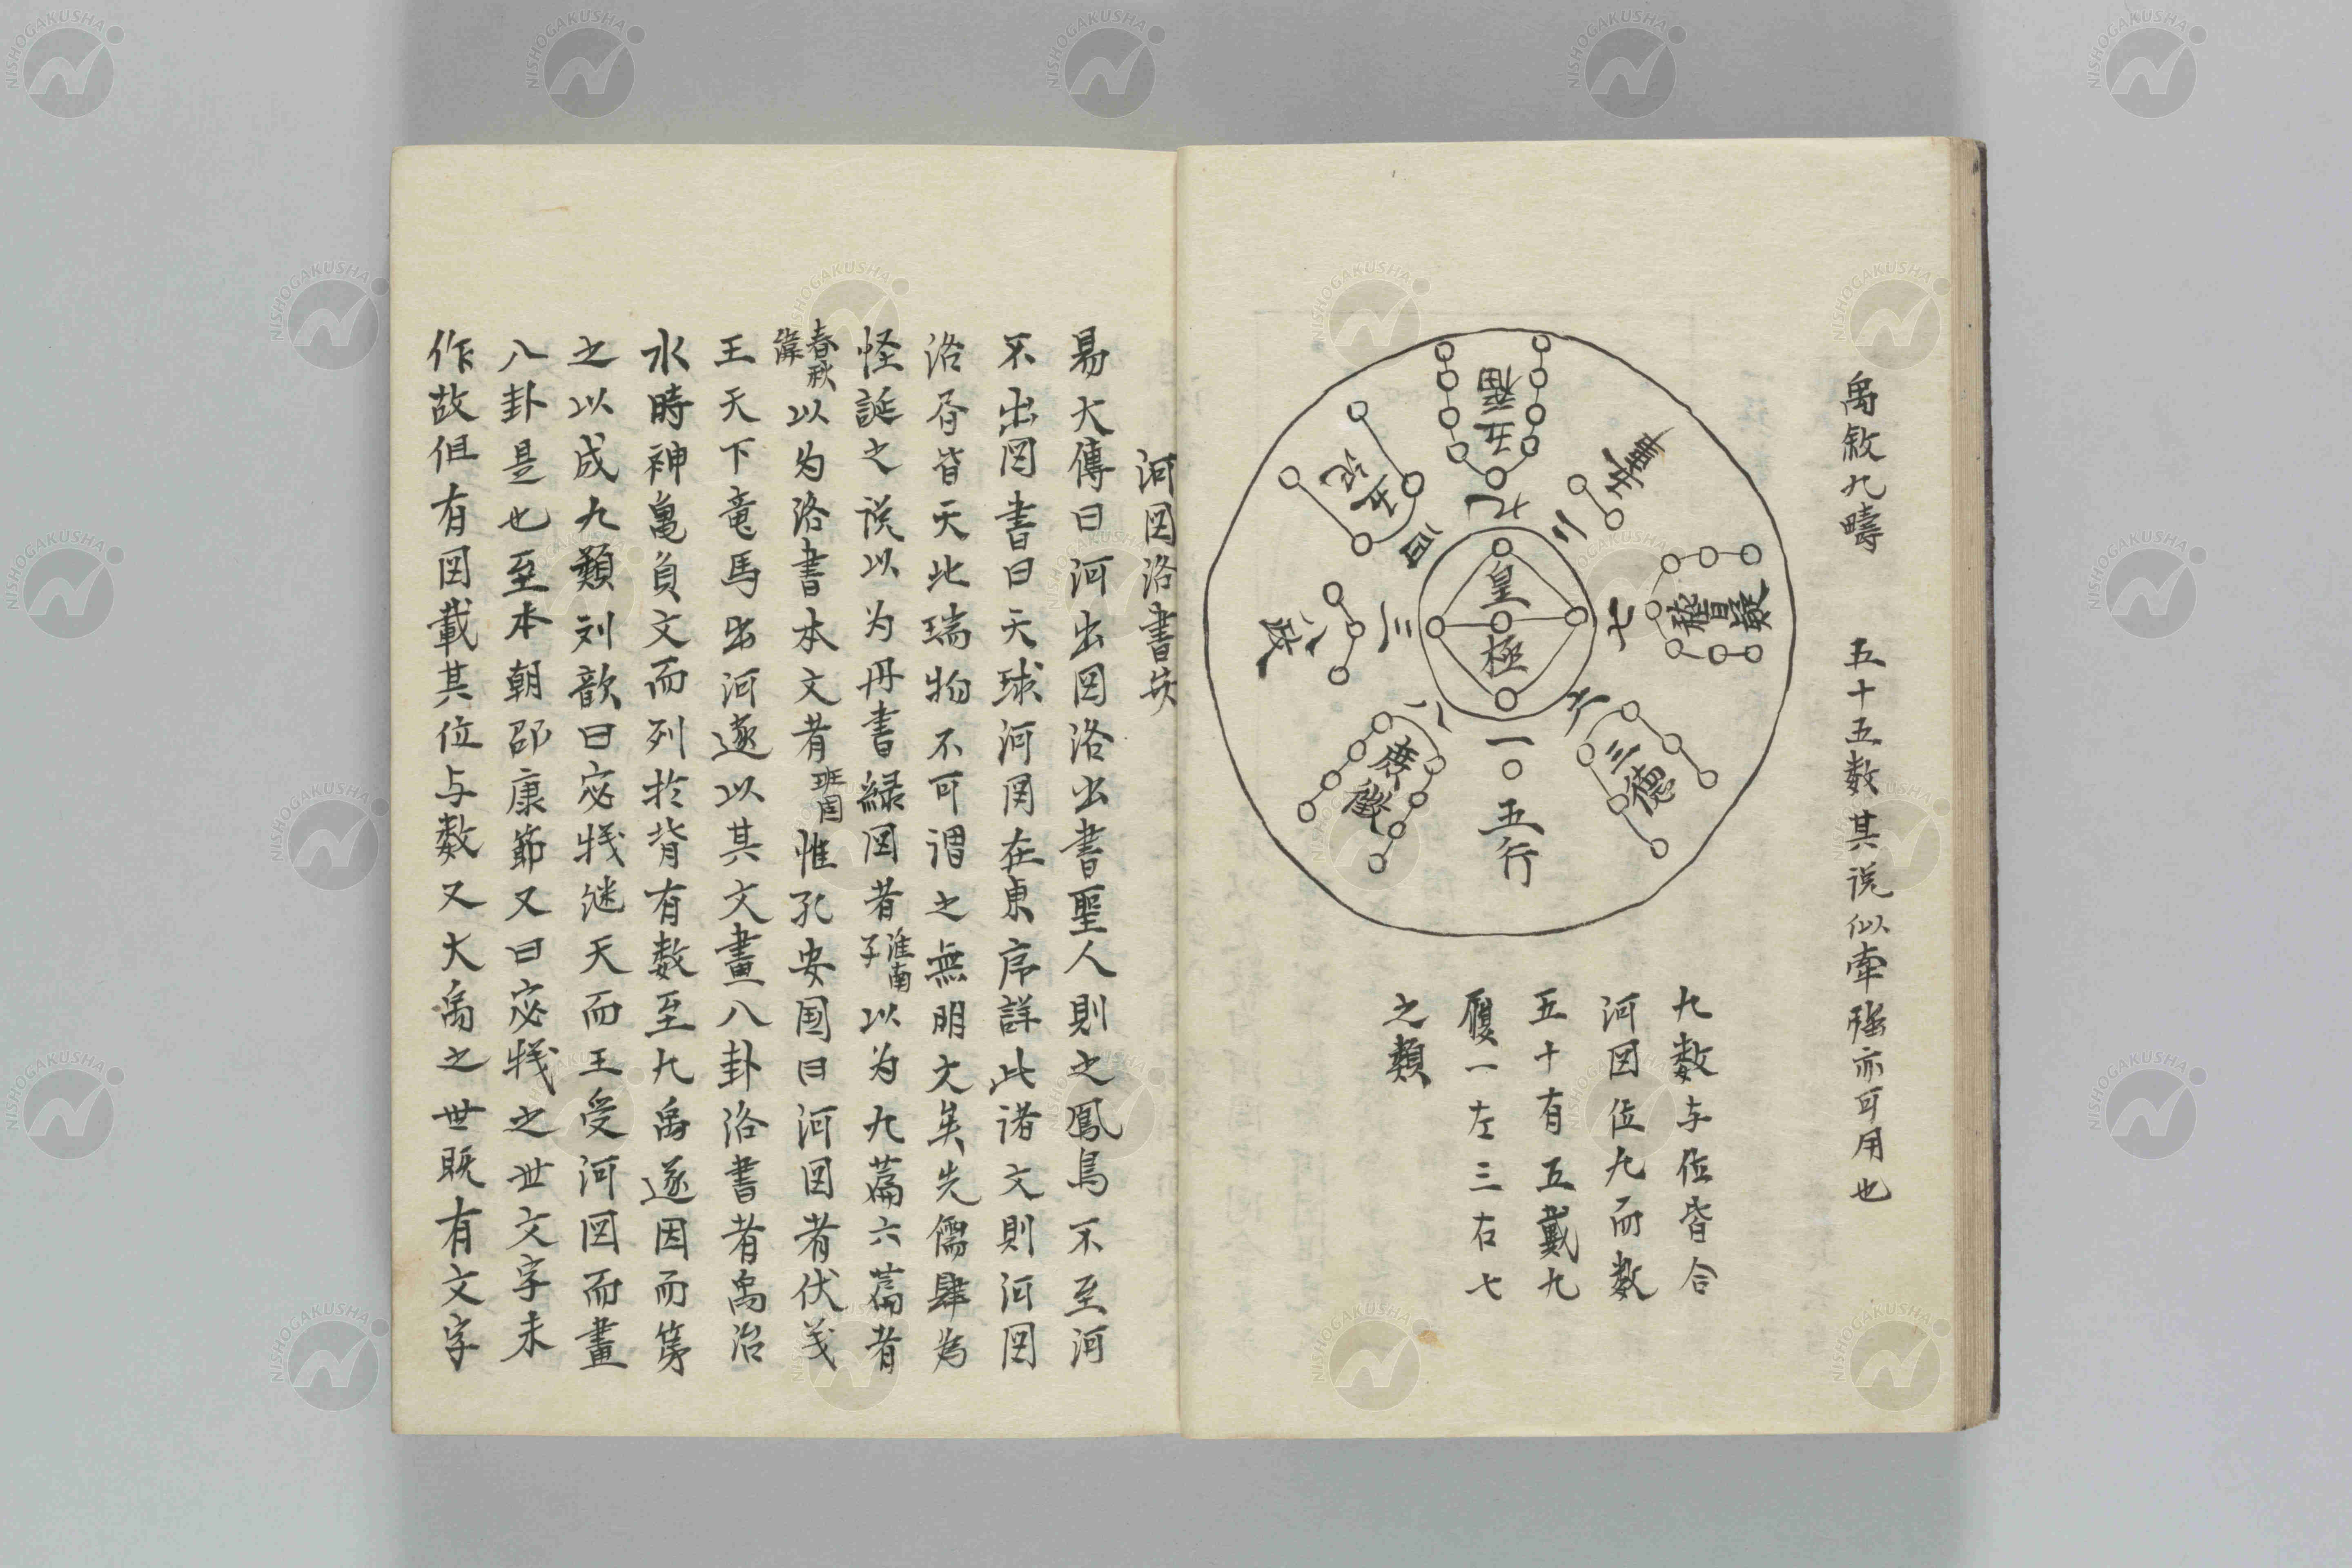 禹敘九疇　五十五数其说似牽强亦可用也
五福
九
五事
二
五紀
四
皇極
稽疑
七
八政
三
三德
六
庶徵
八
一
五行
九数与位皆合
河図位九而数
五十有五戴九
履一左三右七
之類
河図洛書
易大傳曰河出図洛出書聖人則之鳳鳥不至河
不出図書曰天球河図在東序詳此诸文則河図
洛書皆天此瑞物不可谓之無明文矣先儒肆为
怪誕之说以为丹書緑図者淮南子以为九篇六篇者
春秋緯以为洛書本文者班固惟孔安国曰河図者伏羲
王天下竜馬出河遂以其文畫八卦洛書者禹治
水時神亀負文而列於背有数至九禹遂因而第
之以成九類刘歆曰宓犧继天而王受河図而畫
八卦是也至本朝邵康節又曰宓犧之世文字未
作故但有図載其位与数又大禹之世既有文字
NISHOGAKUSHA